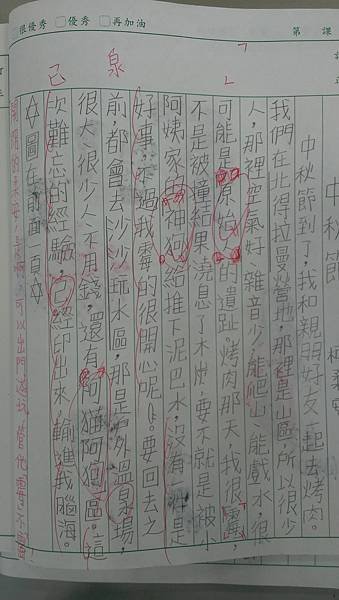 很優秀 優秀 再加油
第 課
中秋節
中秋節到了,我和親朋好友一起去烤肉。
我們在北得拉曼營地,那裡是山區,所以很少
人,那裡空氣好、雜音少,能爬山、能戲水,很
可能是原始人的遺趾。烤肉那天,我很霉,
不是被撞結果澆息了木炭,要不就是被小
阿姨家的神狗給推下泥巴水,沒有一件是
好事,不過我霉的很開心呢!要回去之
前,都會去沙沙玩水區,那是戶外溫泉場,
很大、很少人、不用錢,還有阿猫阿狗區。這
次難忘的經驗,已經印出來,輸進我腦海。
☆圖在前面一頁☆
泉
己
可以出門遊玩,管他霉不霉!